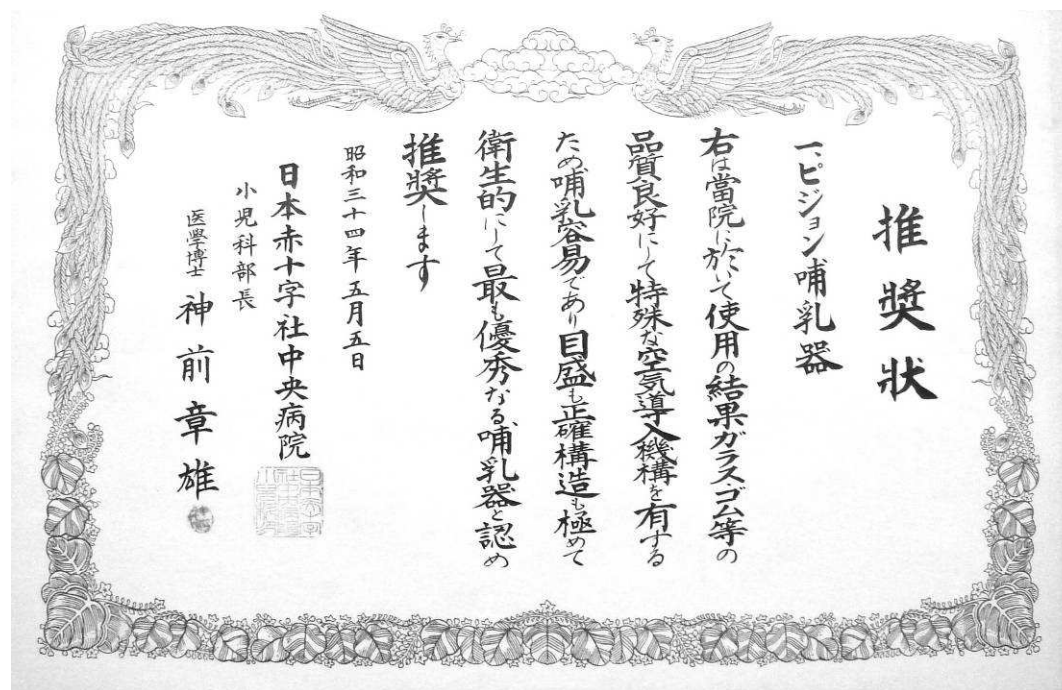 推奬状
一、ピジョン哺乳器
右は當院に於いて使用の結果ガラス・ゴム等の
品質良好にして特殊な空気導入機構を有する
ため哺乳容易であり目盛も正確構造も極めて
衛生的にして最も優秀なる哺乳器と認め
推奬します
昭和三十四年五月五日
日本赤十字社中央病院
小児科部長
医學博士 神前章雄